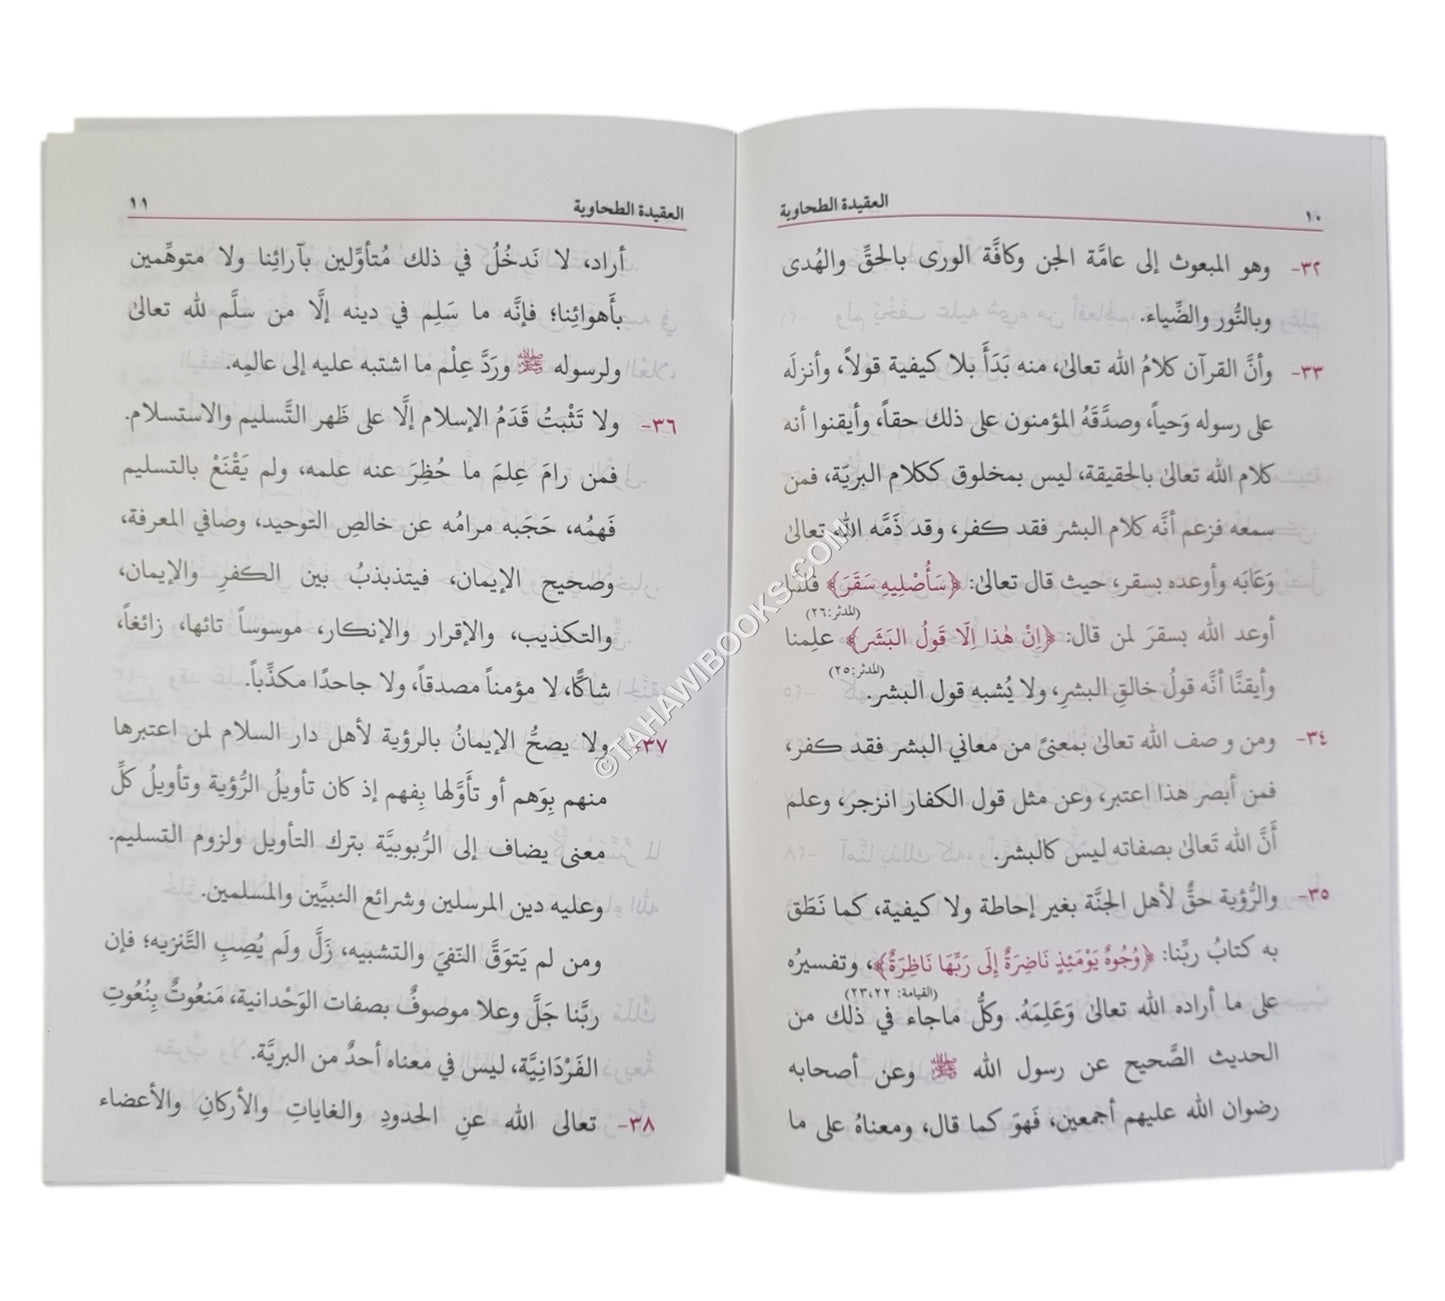 العقيدة الطحاوية ١٠
٣٢- وهو المبعوث إلى عامَّة الجن وكافَّة الورى بالحقِّ والهُدى
وبالنُّور والضِّياء.
٣٣- وأنَّ القرآن كلامُ الله تعالىٰ، منه بَدَأَ بلا كيفية قولاً، وأنزلَه
على رسوله وَحياً، وصدَّقَهُ المؤمنون على ذلك حقاً، وأيقنوا أنه
كلام الله تعالىٰ بالحقيقة، ليس بمخلوق ككلام البريّة، فمن
سمعه فزعم أنَّه كلام البشر فقد كفر، وقد ذَمَّه الله تعالىٰ
وَعَابَه وأوعده بسقر، حيث قال تعالىٰ: ﴿سَأُصْلِيهِ سَقَرَ﴾ فلمَّا
(المدثر:٢٦)
أوعد الله بسقرَ لمن قال: ﴿اِنْ هٰذا اِلَّا قَولُ البَشَر﴾ علِمنا
(المدثر:٢٥)
وأيقنَّا أنَّه قولُ خالقِ البشرِ، ولا يُشبه قول البشر.
٣٤- ومن و صف الله تعالىٰ بمعنىً من معاني البشر فقد كفر،
فمن أبصر هذا اعتبر، وعن مثل قول الكفار انزجر، وعلم
أَنَّ الله تَعالىٰ بصفاته ليس كالبشر.
٣٥- والرُّؤية حقٌّ لأهل الجنَّة بغير إحاطة ولا كيفية، كما نَطَق
به كتابُ ربِّنا: ﴿وُجُوهٌ يَوْمَئِذٍ نَاضِرَةٌ إِلَى رَبِّهَا نَاظِرَةٌ﴾، وتفسيرُه
(القيامة: ٢٣،٢٢)
على ما أراده الله تعالىٰ وَعَلِمَهُ. وكلُّ ماجاء في ذلك من
الحديث الصَّحيح عن رسول الله ﷺ وعن أصحابه
رضوان الله عليهم أجمعين، فَهوَ كما قال، ومعناهُ على ما
العقيدة الطحاوية ١١
أراد، لا نَدخُلُ في ذلك مُتأوِّلين بآرائِنا ولا متوهِّمين
بأَهوائِنا؛ فإنَّه ما سَلِم في دينه إلَّا من سلَّم لله تعالىٰ
ولرسوله ﷺ ورَدَّ عِلْم ما اشتبه عليه إلى عالمِه.
٣٦- ولا تَثْبتُ قَدَمُ الإسلام إلَّا على ظَهر التَّسليم والاستسلام.
فمن رامَ عِلمَ ما حُظِرَ عنه علمه، ولم يَقْنَعْ بالتسليم
فَهمُه، حَجَبه مرامُه عن خالصِ التوحيد، وصافي المعرفة،
وصحيح الإيمان، فيتذبذبُ بين الكفرِ والإيمان،
والتكذيب، والإقرار والإنكار، موسوساً تائها، زائغاً،
شاكًّا، لا مؤمناً مصدقاً، ولا جاحدًا مكذِّباً.
٣٧- ولا يصحُّ الإيمانُ بالرؤية لأهل دار السلام لمن اعتبرها
منهم بِوَهم أو تأَوَّلها بِفهم إذ كان تأويلُ الرُّؤية وتأويلُ كلِّ
معنى يضاف إلى الرُّبوبيَّة بترك التأويل ولزوم التسليم.
وعليه دين المرسلين وشرائع النبيِّين والمسلمين.
ومن لم يَتوَقَّ النّفيَ والتشبيه، زَلَّ ولَم يُصِبِ التَّنزيه؛ فإن
ربَّنا جَلَّ وعلا موصوفٌ بصفات الوَحْدانية، مَنعُوتٌ بِنُعُوتِ
الفَرْدَانِيَّة، ليس في معناه أحدٌ من البريَّة.
٣٨- تعالى الله عنِ الحدودِ والغاياتِ والأركانِ والأعضاء
©TAHAWIBOOKS.COM